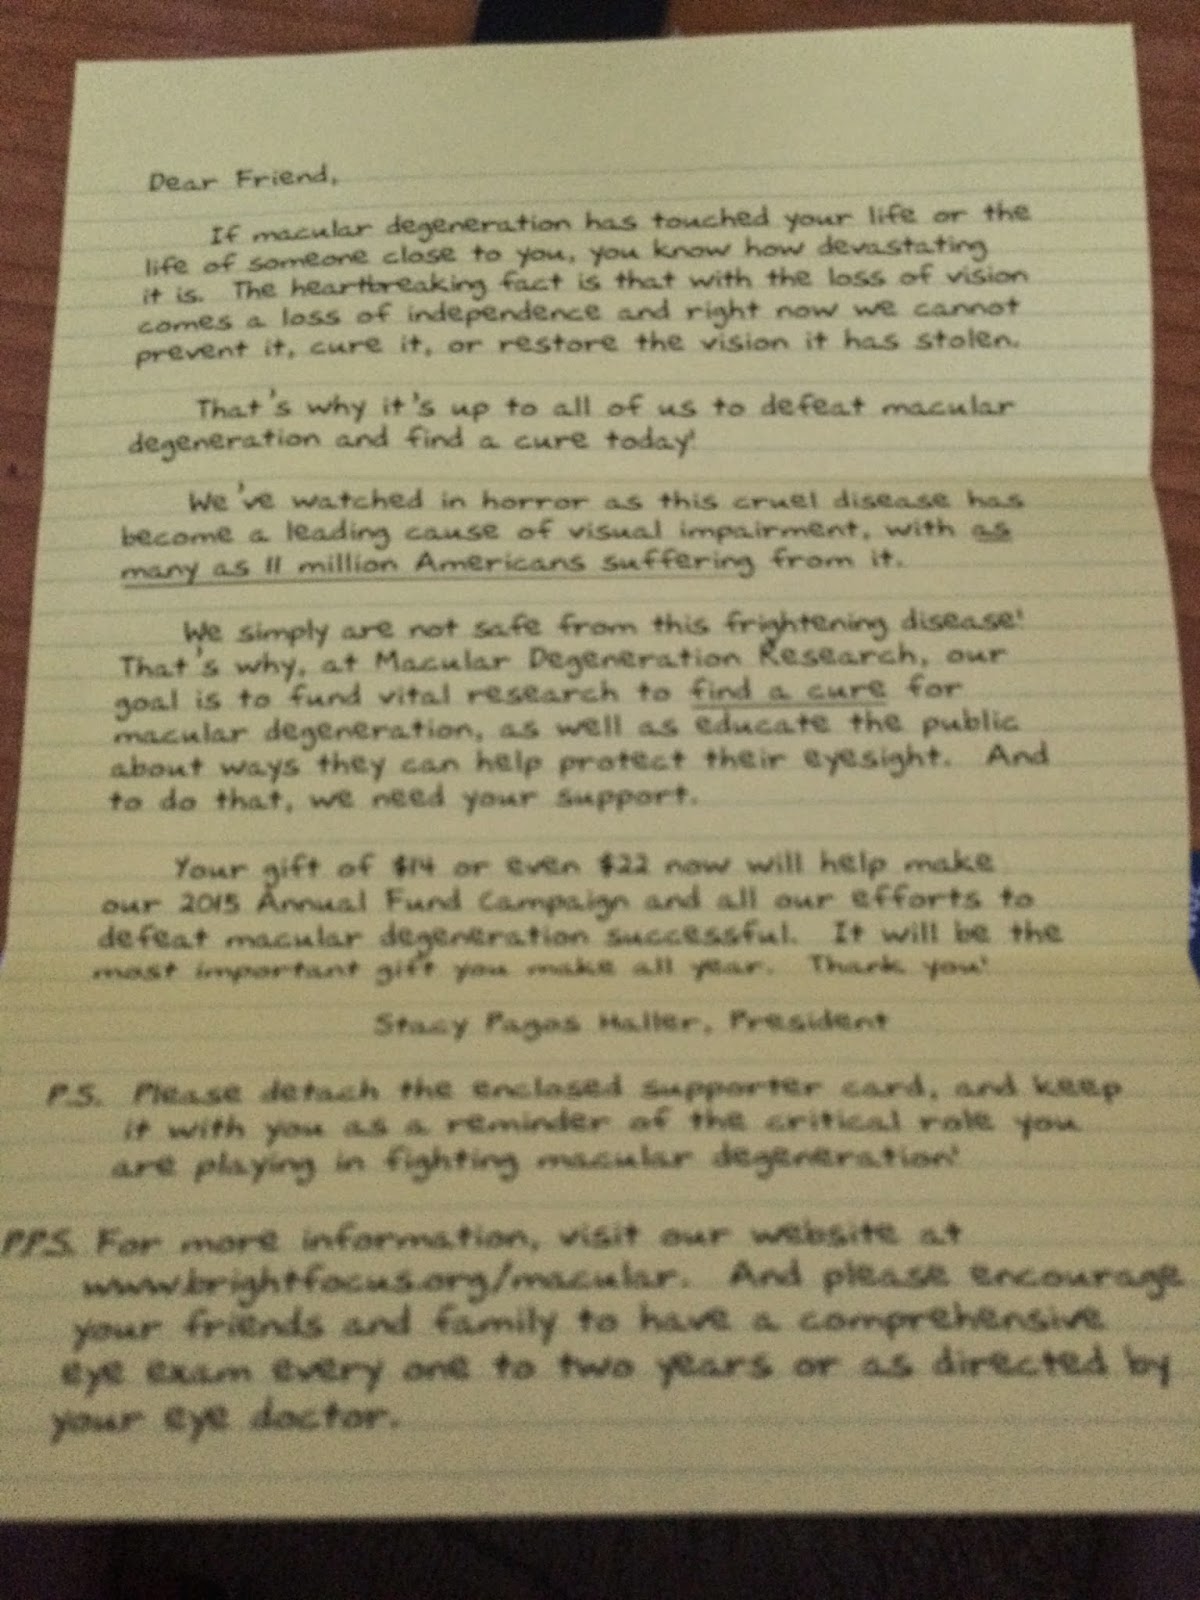 Dear Friend,
If macular degeneration has touched your life or the
life of someone close to you, you know how devastating
it is. The heartbreaking fact is that with the loss of vision
comes a loss of independence and right now we cannot
prevent it, cure it, or restore the vision it has stolen.
That's why it's up to all of us to defeat macular
degeneration and find a cure today!
We've watched in horror as this cruel disease has
become a leading cause of visual impairment, with as
many as 11 million Americans suffering from it.
We simply are not safe from this frightening disease!
That's why, at Macular Degeneration Research, our
goal is to fund vital research to find a cure for
macular degeneration, as well as educate the public
about ways they can help protect their eyesight. And
to do that, we need your support.
Your gift of $14 or even $22 now will help make
our 2015 Annual Fund Campaign and all our efforts to
defeat macular degeneration successful. It will be the
most important gift you make all year. Thank you!
Stacy Pagos Haller, President
P.S. Please detach the enclosed supporter card, and keep
it with you as a reminder of the critical role you
are playing in fighting macular degeneration!
P.P.S. For more information, visit our website at
www.brightfocus.org/macular. And please encourage
your friends and family to have a comprehensive
eye exam every one to two years or as directed by
your eye doctor.